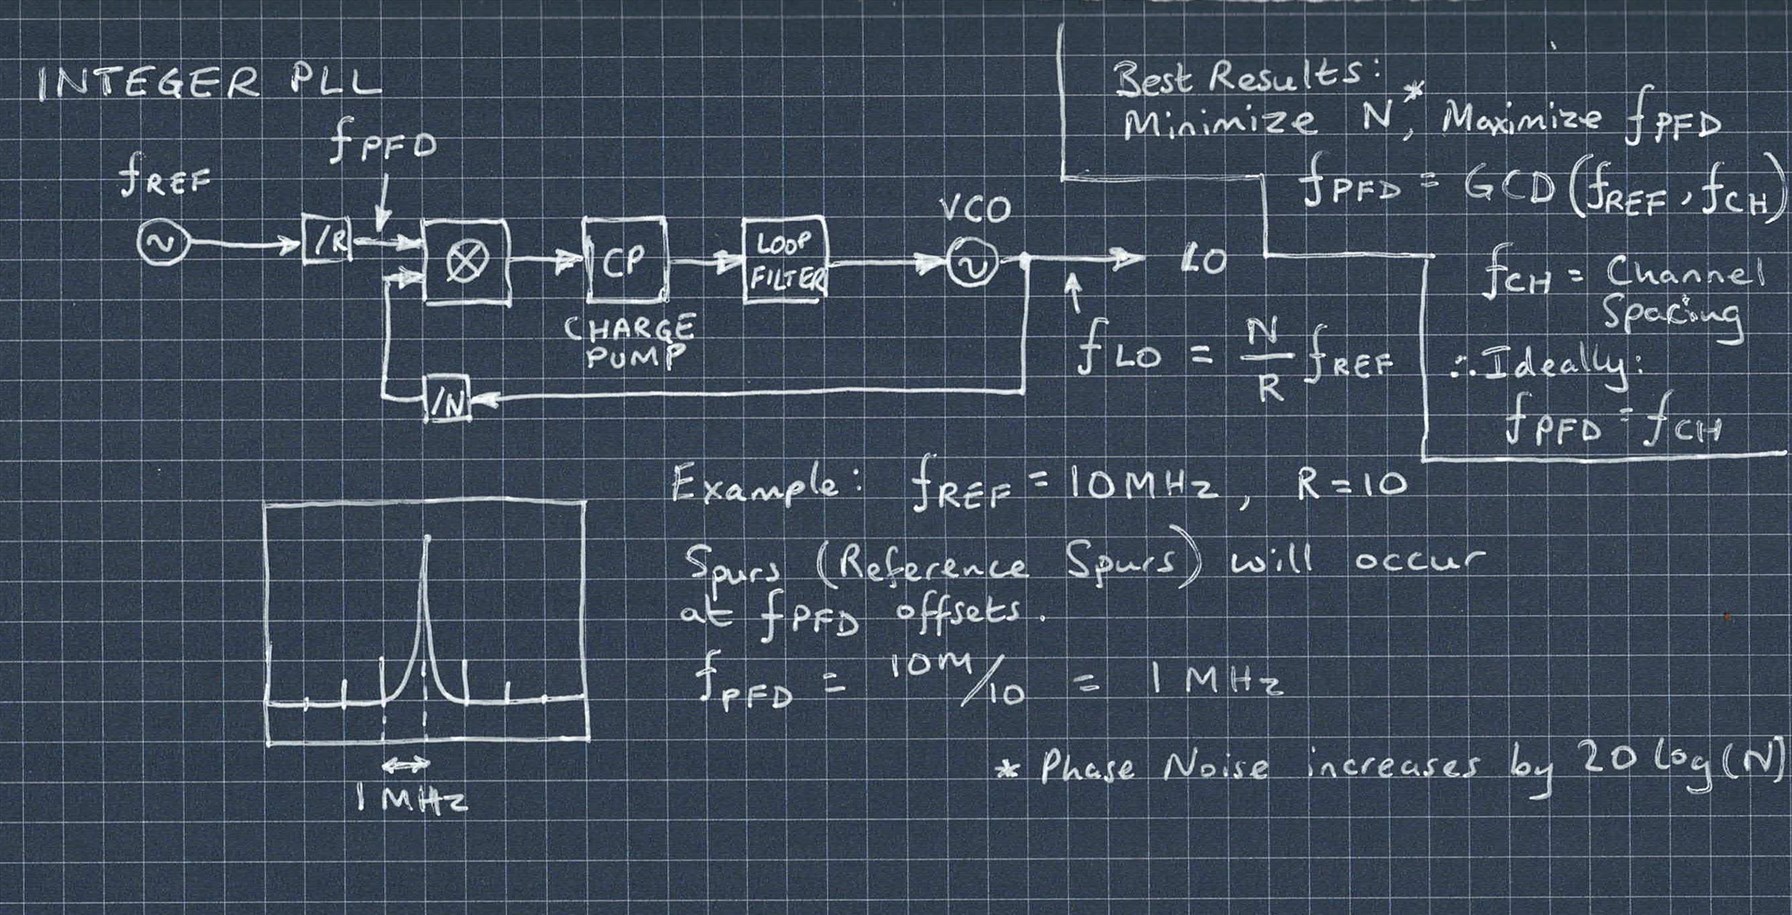 INTEGER PLL
fREF
fPFD
/R
⊗
CP
CHARGE
PUMP
LOOP
FILTER
VCO
LO
/N
fLO = N/R fREF
Best Results:
Minimize N*, Maximize fPFD
fPFD = GCD(fREF, fCH)
fCH = Channel
Spacing
∴ Ideally:
fPFD = fCH
Example: fREF = 10MHz, R=10
Spurs (Reference Spurs) will occur
at fPFD offsets.
fPFD = 10M/10 = 1 MHz
1 MHz
* Phase Noise increases by 20 log(N)